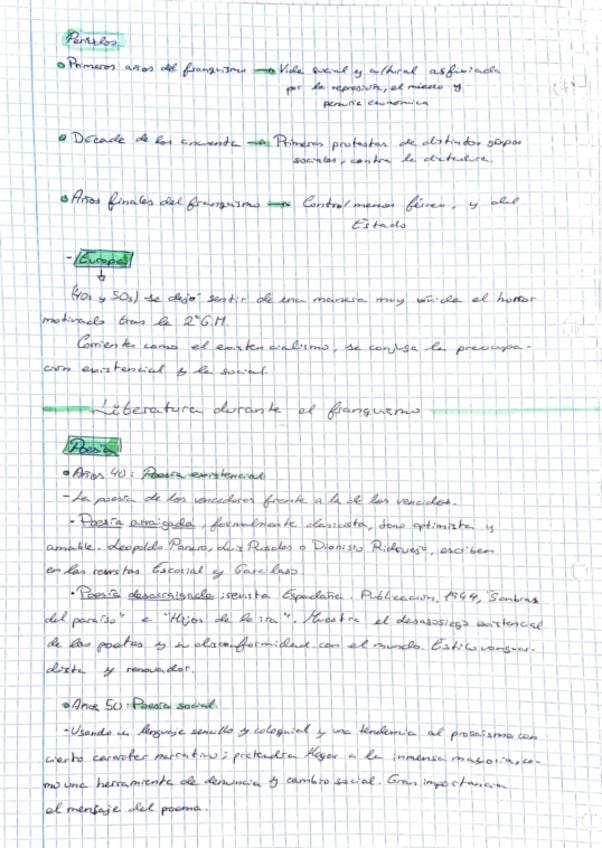 Períodos
Primeros años del franquismo → Vida social y cultural asfixiada
por la represión, el miedo y
penuria económica
Década de los cincuenta → Primeras protestas de distintos grupos
sociales, contra la dictadura.
Años finales del franquismo → Control menos férreo, y del
Estado
- Europa
↓
(40s y 50s) se dejó sentir de una manera muy vívida el horror
motivado tras la 2ªG.M.
Corriente como el existencialismo, se conjuga la preocupa-
ción existencial y la social.
Literatura durante el franquismo
Poesía
Años 40: Poesía existencial
- La poesía de los vencedores frente a la de los vencidos.
· Poesía arraigada, formalmente clasicista, tono optimista y
amable. Leopoldo Panero, Luis Rosales o Dionisio Ridruejo, escriben
en las revistas Escorial y Garcilaso.
· Poesía desarraigada: revista Espadaña. Publicación, 1944, "Sombras
del paraíso" e "Hijos de la ira". Muestra el desasosiego existencial
de los poetas y su disconformidad con el mundo. Estilo vanguar-
dista y renovador.
Años 50: Poesía social.
· Usando un lenguaje sencillo y coloquial y una tendencia al prosaísmo con
cierto caracter narrativo; pretendía llegar a la inmensa mayoría, co-
mo una herramienta de denuncia y cambio social. Gran importancia
el mensaje del poema.